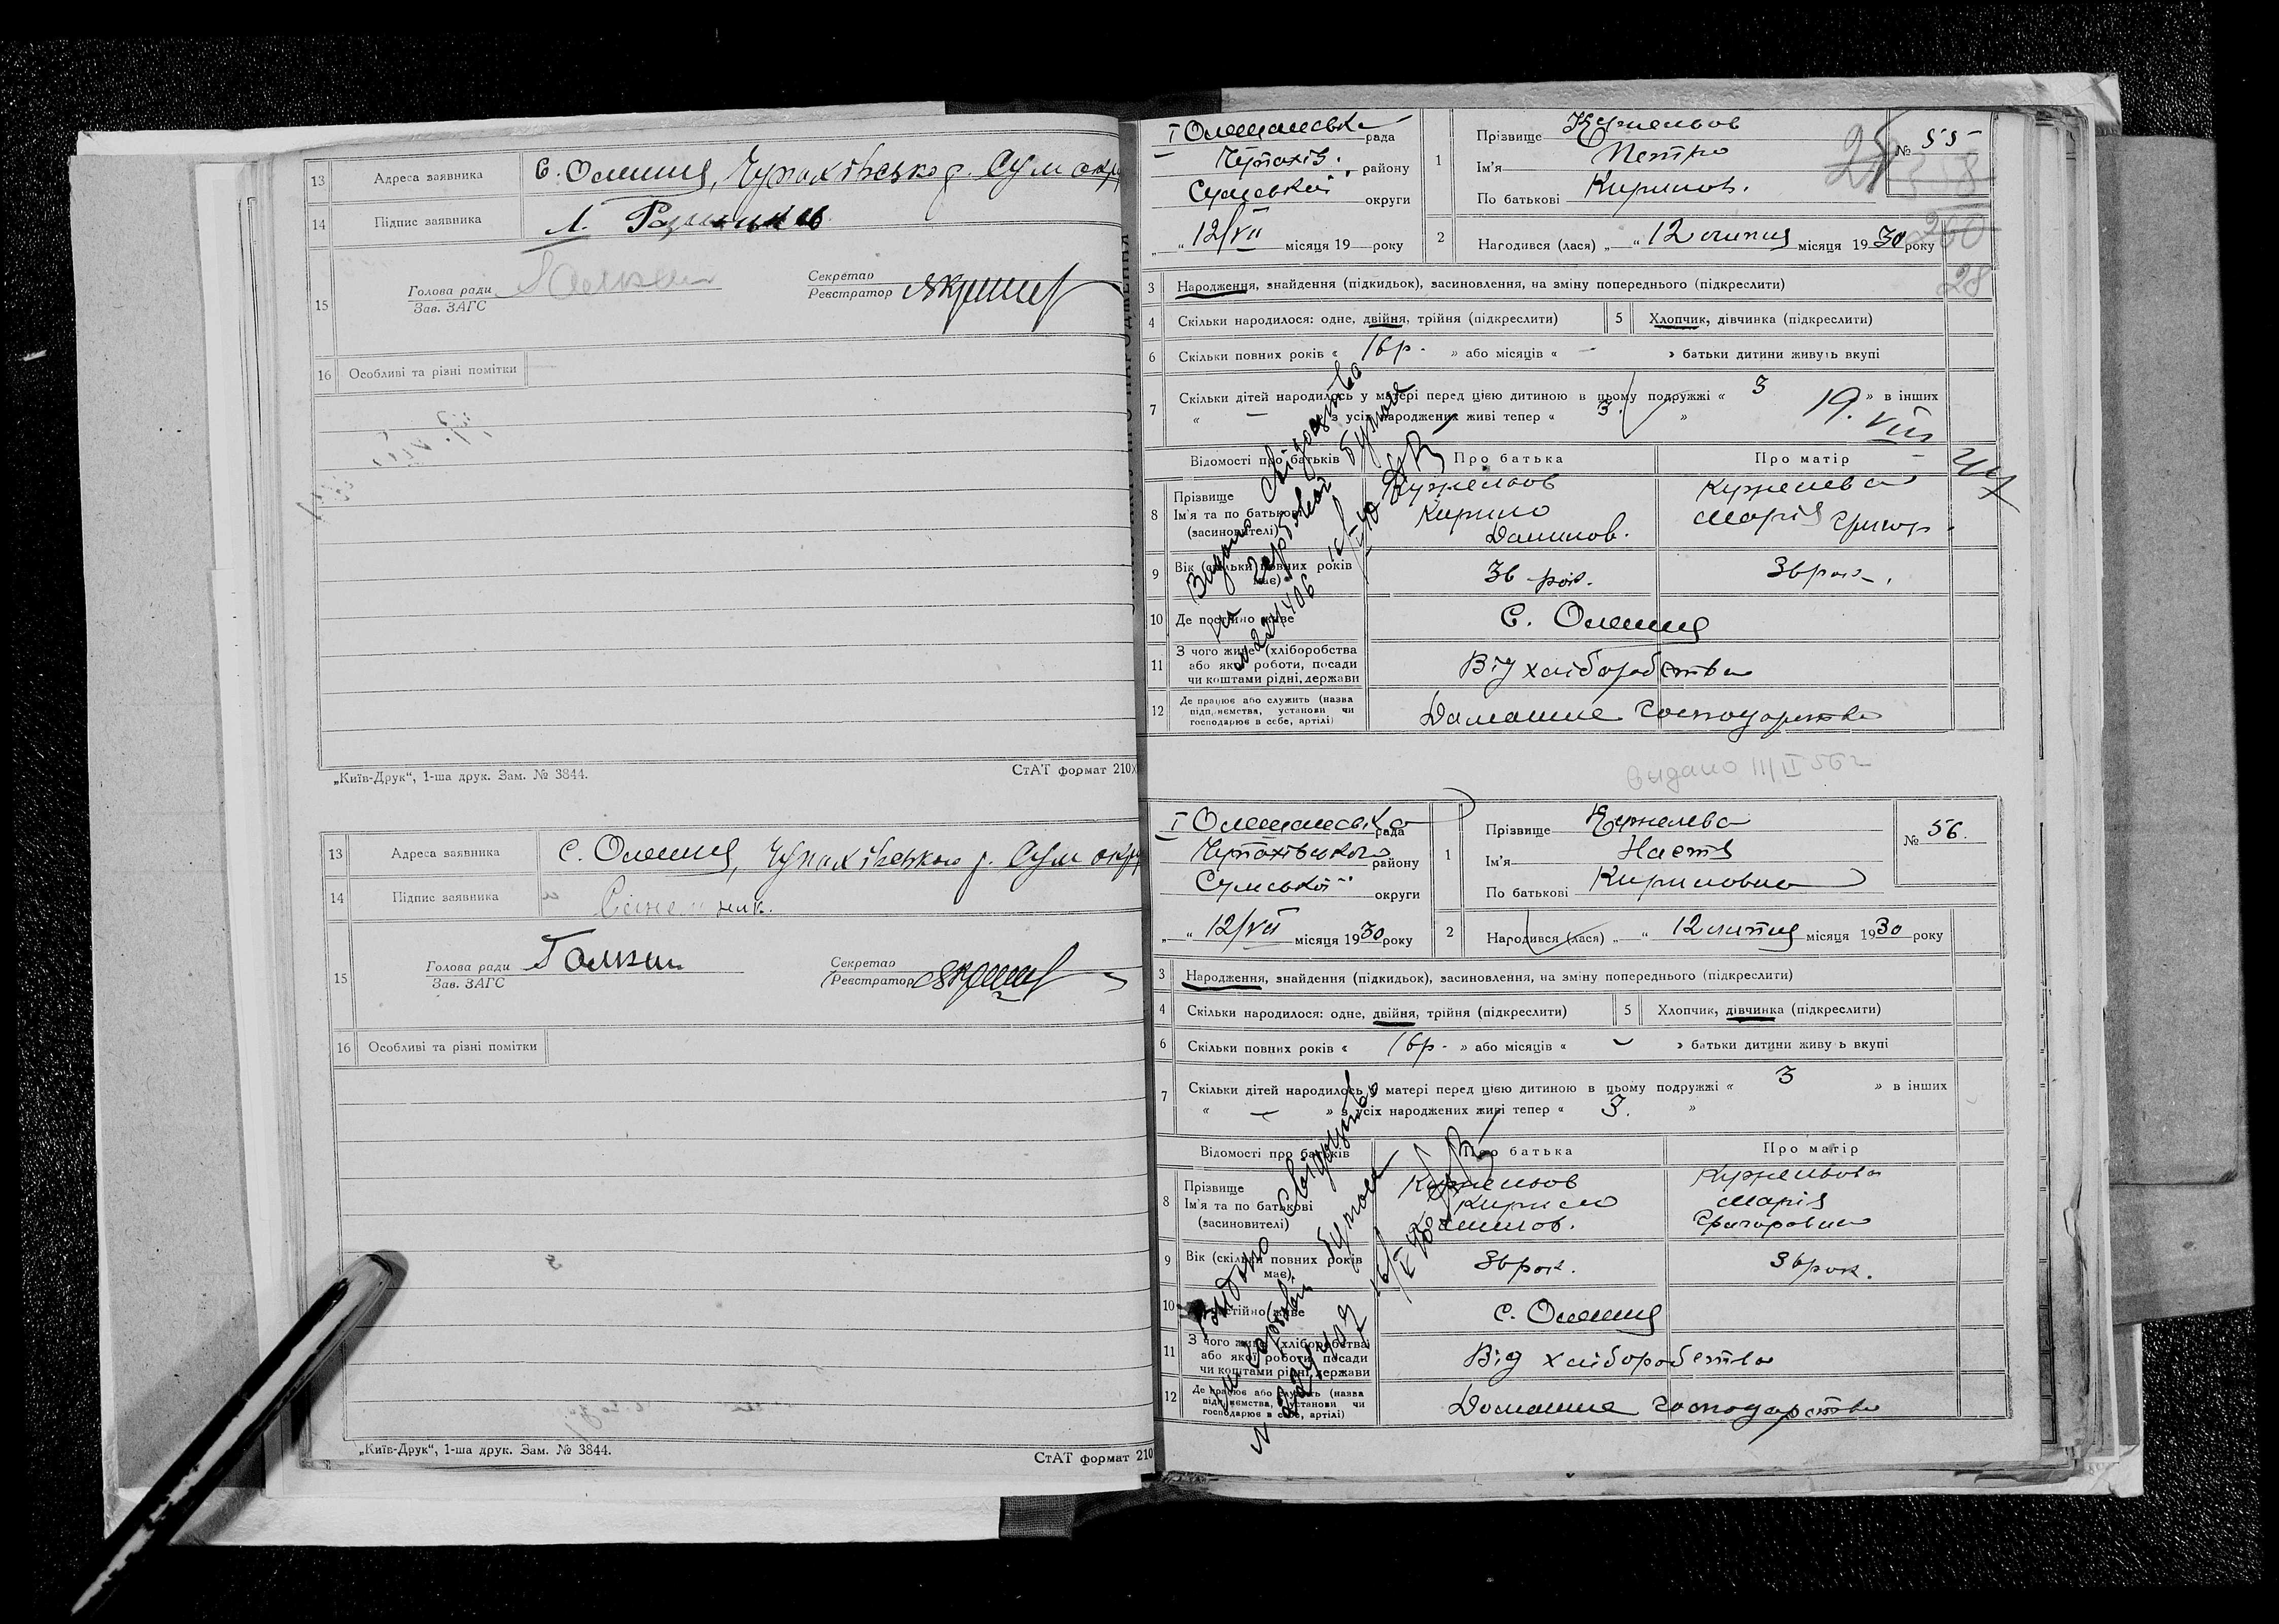 13 Адреса заявника С. Олешня, Чупахівського р. Сум окр
14 Підпис заявника Л.
15 Голова ради
Зав. ЗАГС
Секретар
Реєстратор
16 Особливі та різні помітки
„Київ-Друк“, 1-ша друк. Зам. № 3844. СтАТ формат 210
13 Адреса заявника с. Олешня, Чупахівського р. Сум окр
14 Підпис заявника
15 Голова ради Галкин
Зав. ЗАГС
Секретар
Реєстратор
16 Особливі та різні помітки
„Київ-Друк“, 1-ша друк. Зам. № 3844. СтАТ формат 210
І Олешанська рада
Чупахів. району
Сумської округи
„ 12/VII місяця 19 року
1 Прізвище Кужельов
Ім'я Петро
По батькові Кирилов.
№ 55
2 Народився (лася) „ “ 12 липня місяця 1930 року
28
3 Народження, знайдення (підкидьок), засиновлення, на зміну попереднього (підкреслити)
4 Скільки народилося: одне, двійня, трійня (підкреслити) 5 Хлопчик, дівчинка (підкреслити)
6 Скільки повних років « 16р. » або місяців « - » батьки дитини живуть вкупі
7 Скільки дітей народилось у матері перед цією дитиною в цьому подружжі « 3 » в інших
« — » з усіх народжених живі тепер « 3. »
19. VIII
Відомості про батьків Про батька Про матір
8 Прізвище
Ім'я та по батькові
(засиновителі)
Кужельов
Кирило
Данилов.
Кужелева
Марія Григор.
9 Вік (скільки повних років має) 36 рок. 36 рок.
10 Де постійно живе С. Олешня
11 З чого живе (хліборобства
або якої роботи, посади
чи коштами рідні, держави
Від хліборобства
12 Де працює або служить (назва
підприємства, установи чи
господарює в себе, артілі)
Домашнє господарство
Видано свідоцтво
на гербовой бумаге
№ 221406
выдано III/II 56 г
І Олешанська рада
Чупахівського району
Сумської округи
„ “ 12/VII місяця 1930 року
1 Прізвище Кужелева
Ім'я Настя
По батькові Кириловна
№ 56.
2 Народився (лася) „ “ 12 липня місяця 1930 року
3 Народження, знайдення (підкидьок), засиновлення, на зміну попереднього (підкреслити)
4 Скільки народилося: одне, двійня, трійня (підкреслити) 5 Хлопчик, дівчинка (підкреслити)
6 Скільки повних років « 16р. » або місяців « - » батьки дитини живуть вкупі
7 Скільки дітей народилось у матері перед цією дитиною в цьому подружжі « 3 » в інших
« — » з усіх народжених живі тепер « 3. »
Відомості про батьків Про батька Про матір
8 Прізвище
Ім'я та по батькові
(засиновителі)
Кужельов
Кирило
Данилов.
Кужельова
Марія
Григоровна
9 Вік (скільки повних років має) 36 рок. 36 рок.
10 Де постійно живе с. Олешня
11 З чого живе (хліборобства
або якої роботи, посади
чи коштами рідні, держави
Від хліборобства
12 Де працює або служить (назва
підприємства, установи чи
господарює в себе, артілі)
Домашнє господарство
Видано свідоцтво
на гербовой бумаге